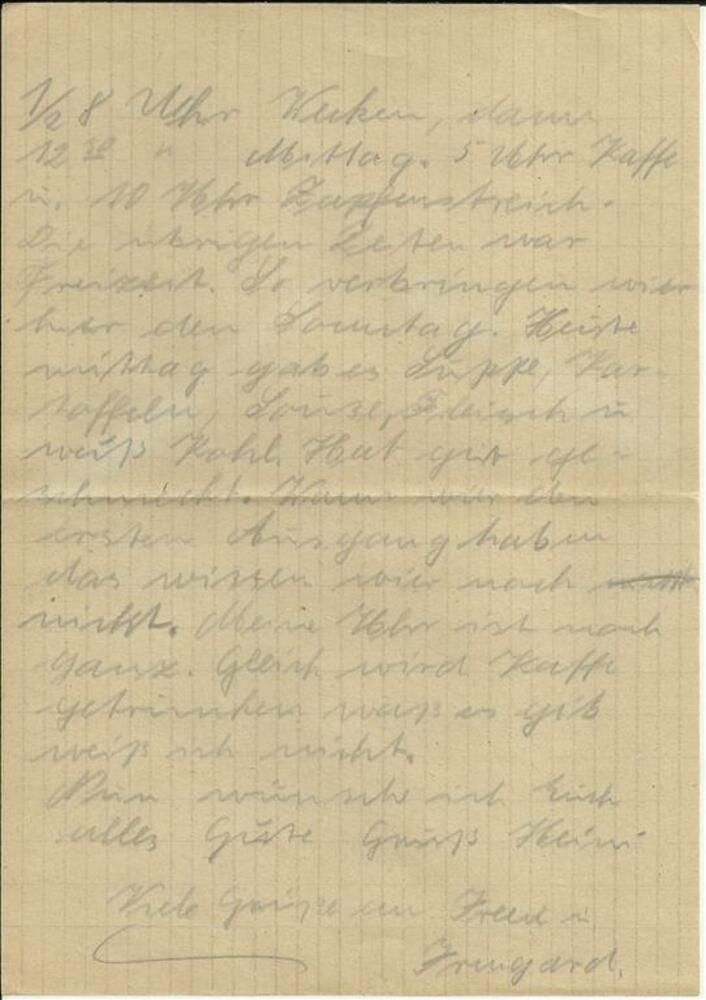 1/2 8 Uhr Wecken, dann
12 30 " Mittag. 5 Uhr Kaffe
u. 10 Uhr Zapfenstreich.
Die übrigen Zeiten war
Freizeit. So verbringen wier
hier den Sonntag. Heute
mittag gab es Suppe, Kar-
toffeln, Souse, Fleisch u
weiß Kohl. Hat gut ge-
schmeckt. Wann wier den
ersten Ausgang haben
das wissen wier noch
nicht. Meine Uhr ist noch
ganz. Gleich wird Kaffe
getrunken waß es gib
weiß ich nicht.
Nun wünsche ich Euch
alles Gute Gruß Heini
Viele Grüße an Freed u
Irmgard.